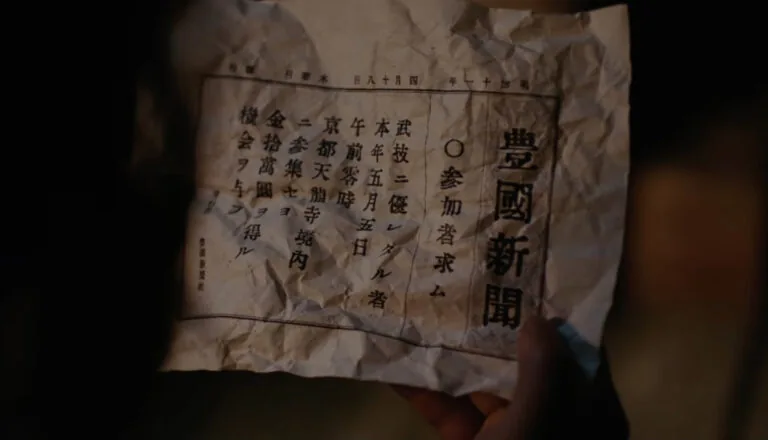 明治十一年 四月十八日 木曜日
豊國新聞
○参加者求ム
武技ニ優レタル者
本年五月五日
午前零時
京都天龍寺境内
ニ参集セヨ
金拾萬圓ヲ得ル
機会ヲ与フ
豊國新聞社